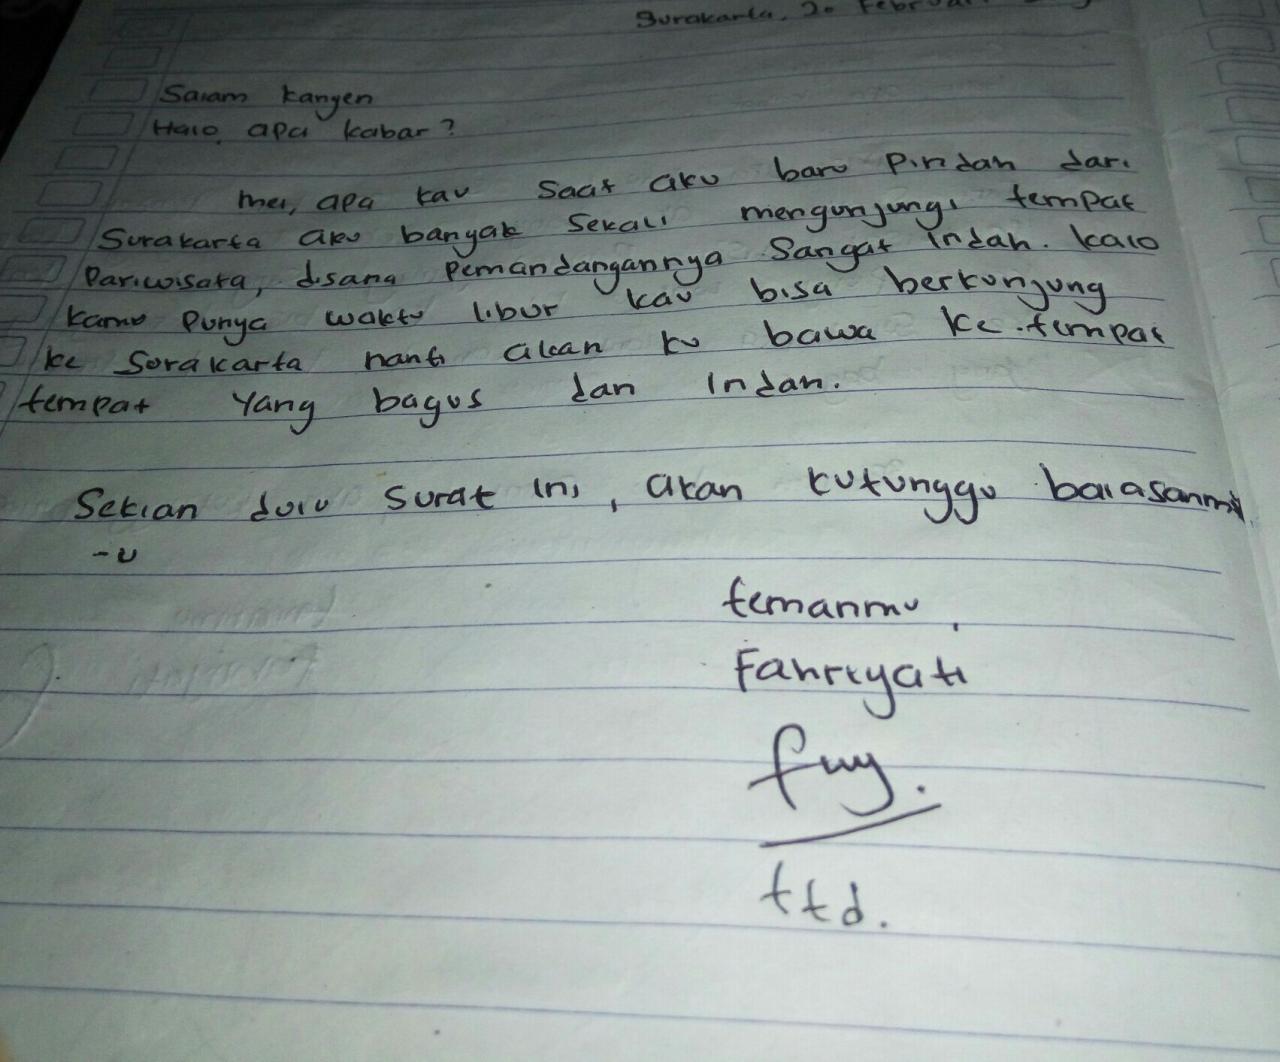 Surakarta, 20 Februari
Salam kangen
Halo, apa kabar?
Mei, apa kau saat aku baru pindah dari
Surakarta aku banyak sekali mengunjungi tempat
Pariwisata, disana pemandangannya sangat indah. kalo
kamu punya waktu libur kau bisa berkunjung
ke Surakarta nanti akan ku bawa ke tempat
tempat yang bagus dan indah.
Sekian dulu surat ini, akan kutunggu balasanm
-u
temanmu,
Fahriyati
ttd.